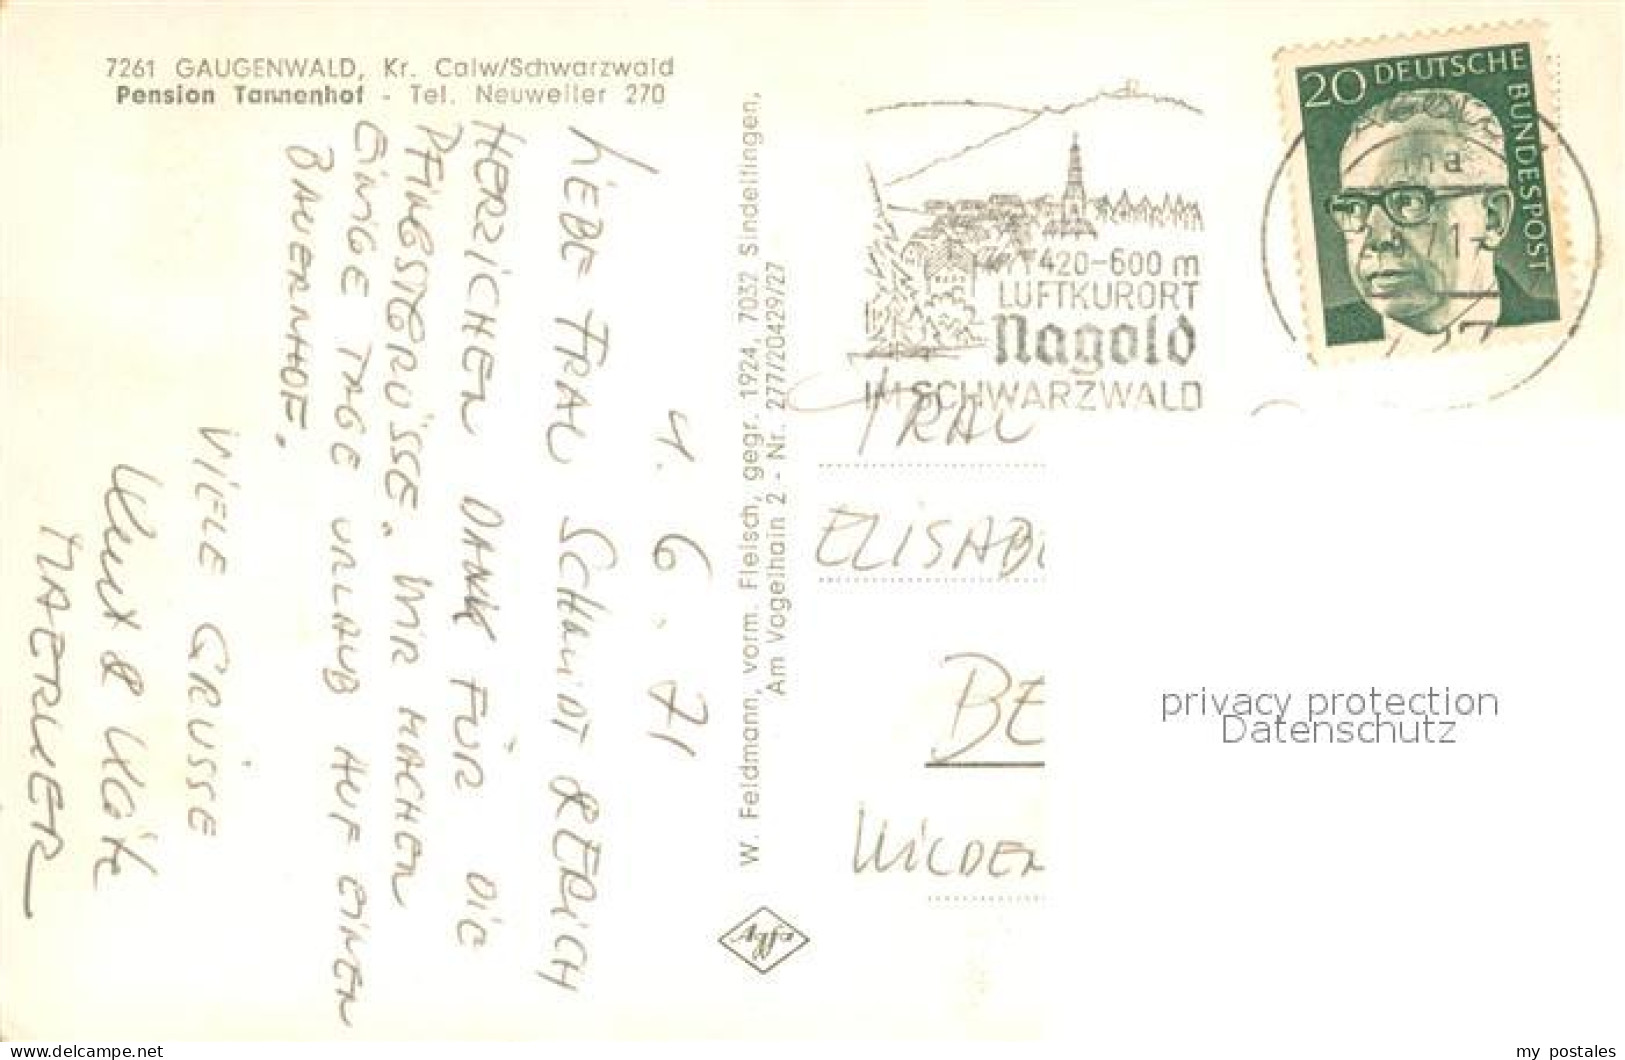 7261 GAUGENWALD, Kr. Calw/Schwarzwald
Pension Tannenhof - Tel. Neuweiler 270
4. 6. 71
LIEBE FRAU SCHMIDT & ERICH
HERZLICHEN DANK FÜR DIE
PFINGSTGRÜSSE. WIR MACHEN
EINIGE TAGE URLAUB AUF EINEN
BAUERNHOF.
VIELE GRÜSSE
Kurt & Käte
W. Feldmann, vorm. Fleisch, gegr. 1924, 7032 Sindelfingen,
Am Vogelhain 2 - Nr. 277/20429/27
Agfa
420-600 m
LUFTKURORT
Nagold
IM SCHWARZWALD
20 DEUTSCHE
BUNDESPOST
FRAU
ELISAB
BE
WILDEN
privacy protection
Datenschutz
DELCAMPE.NET
my_postales